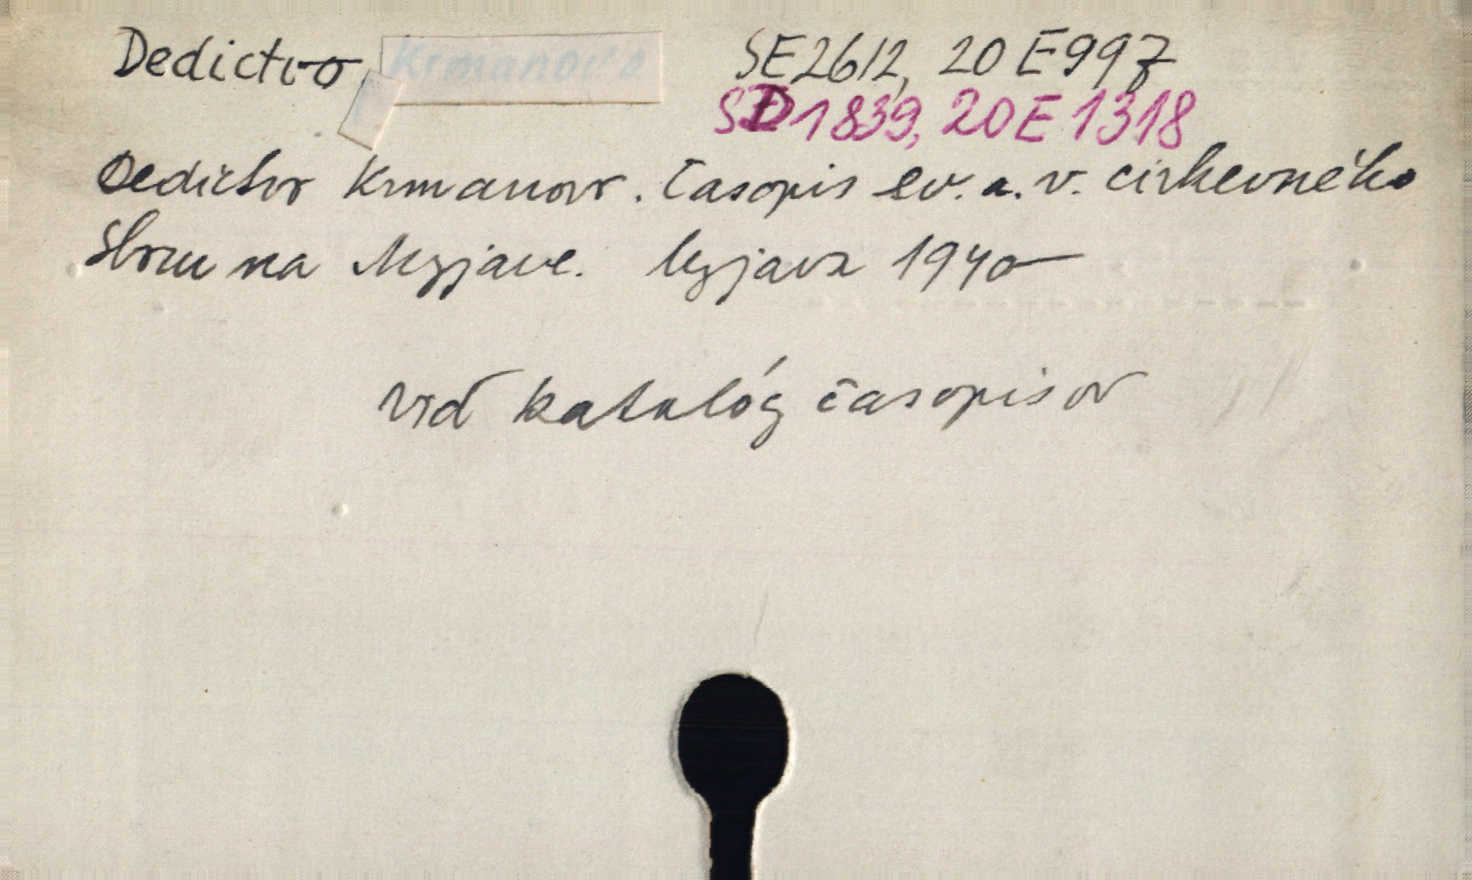 Dedictvo, Krmanovo SE2612, 20 E997
SD1839, 20E1318
Dedictvo Krmanovo. Časopis ev. a. v. cirkevného
Sboru na Myjave. Myjava 1940—
viď katalóg časopisov